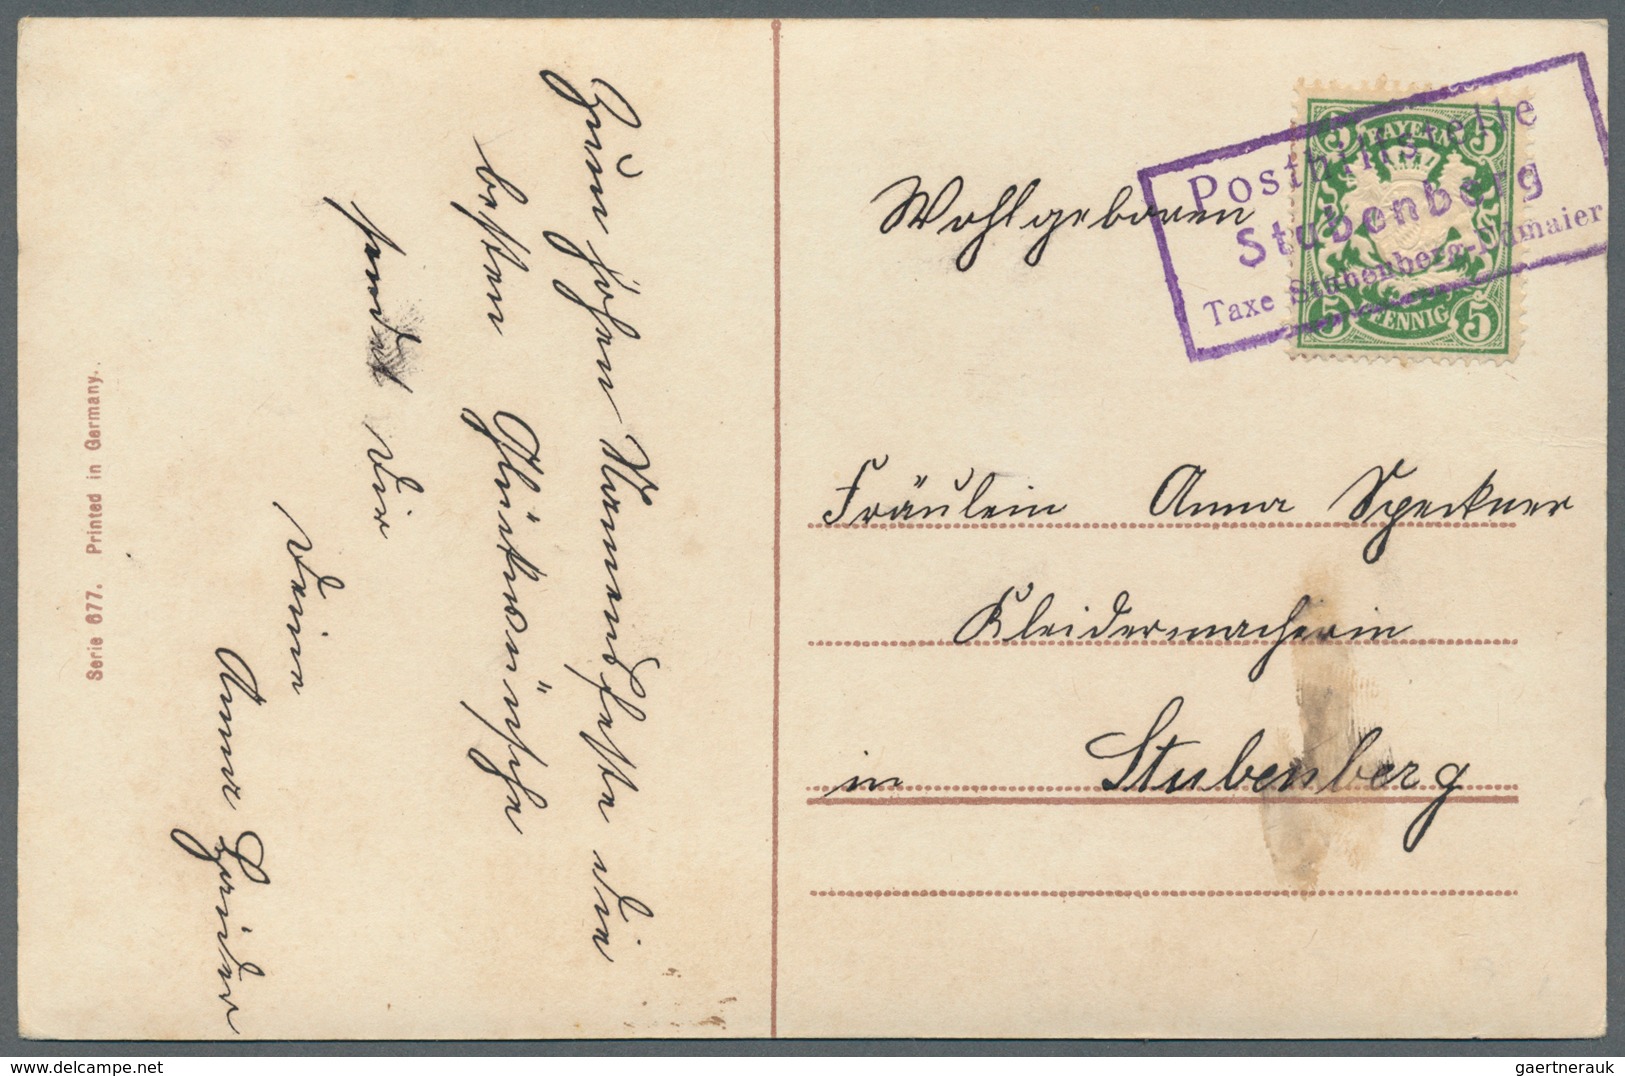 Serie 677. Printed in Germany.
Zum hohen Namensfeste die
besten Glückwünsche
sendet dir
deine
Anna
Posthilfstelle
Stubenberg
Taxe Stubenberg-Edmaier
BAYERN
5 5
5 PFENNIG 5
Wohlgeboren
Fräulein Anna Speckner
Kleidermacherin
in Stubenberg
gaertnerauk
delcampe.net